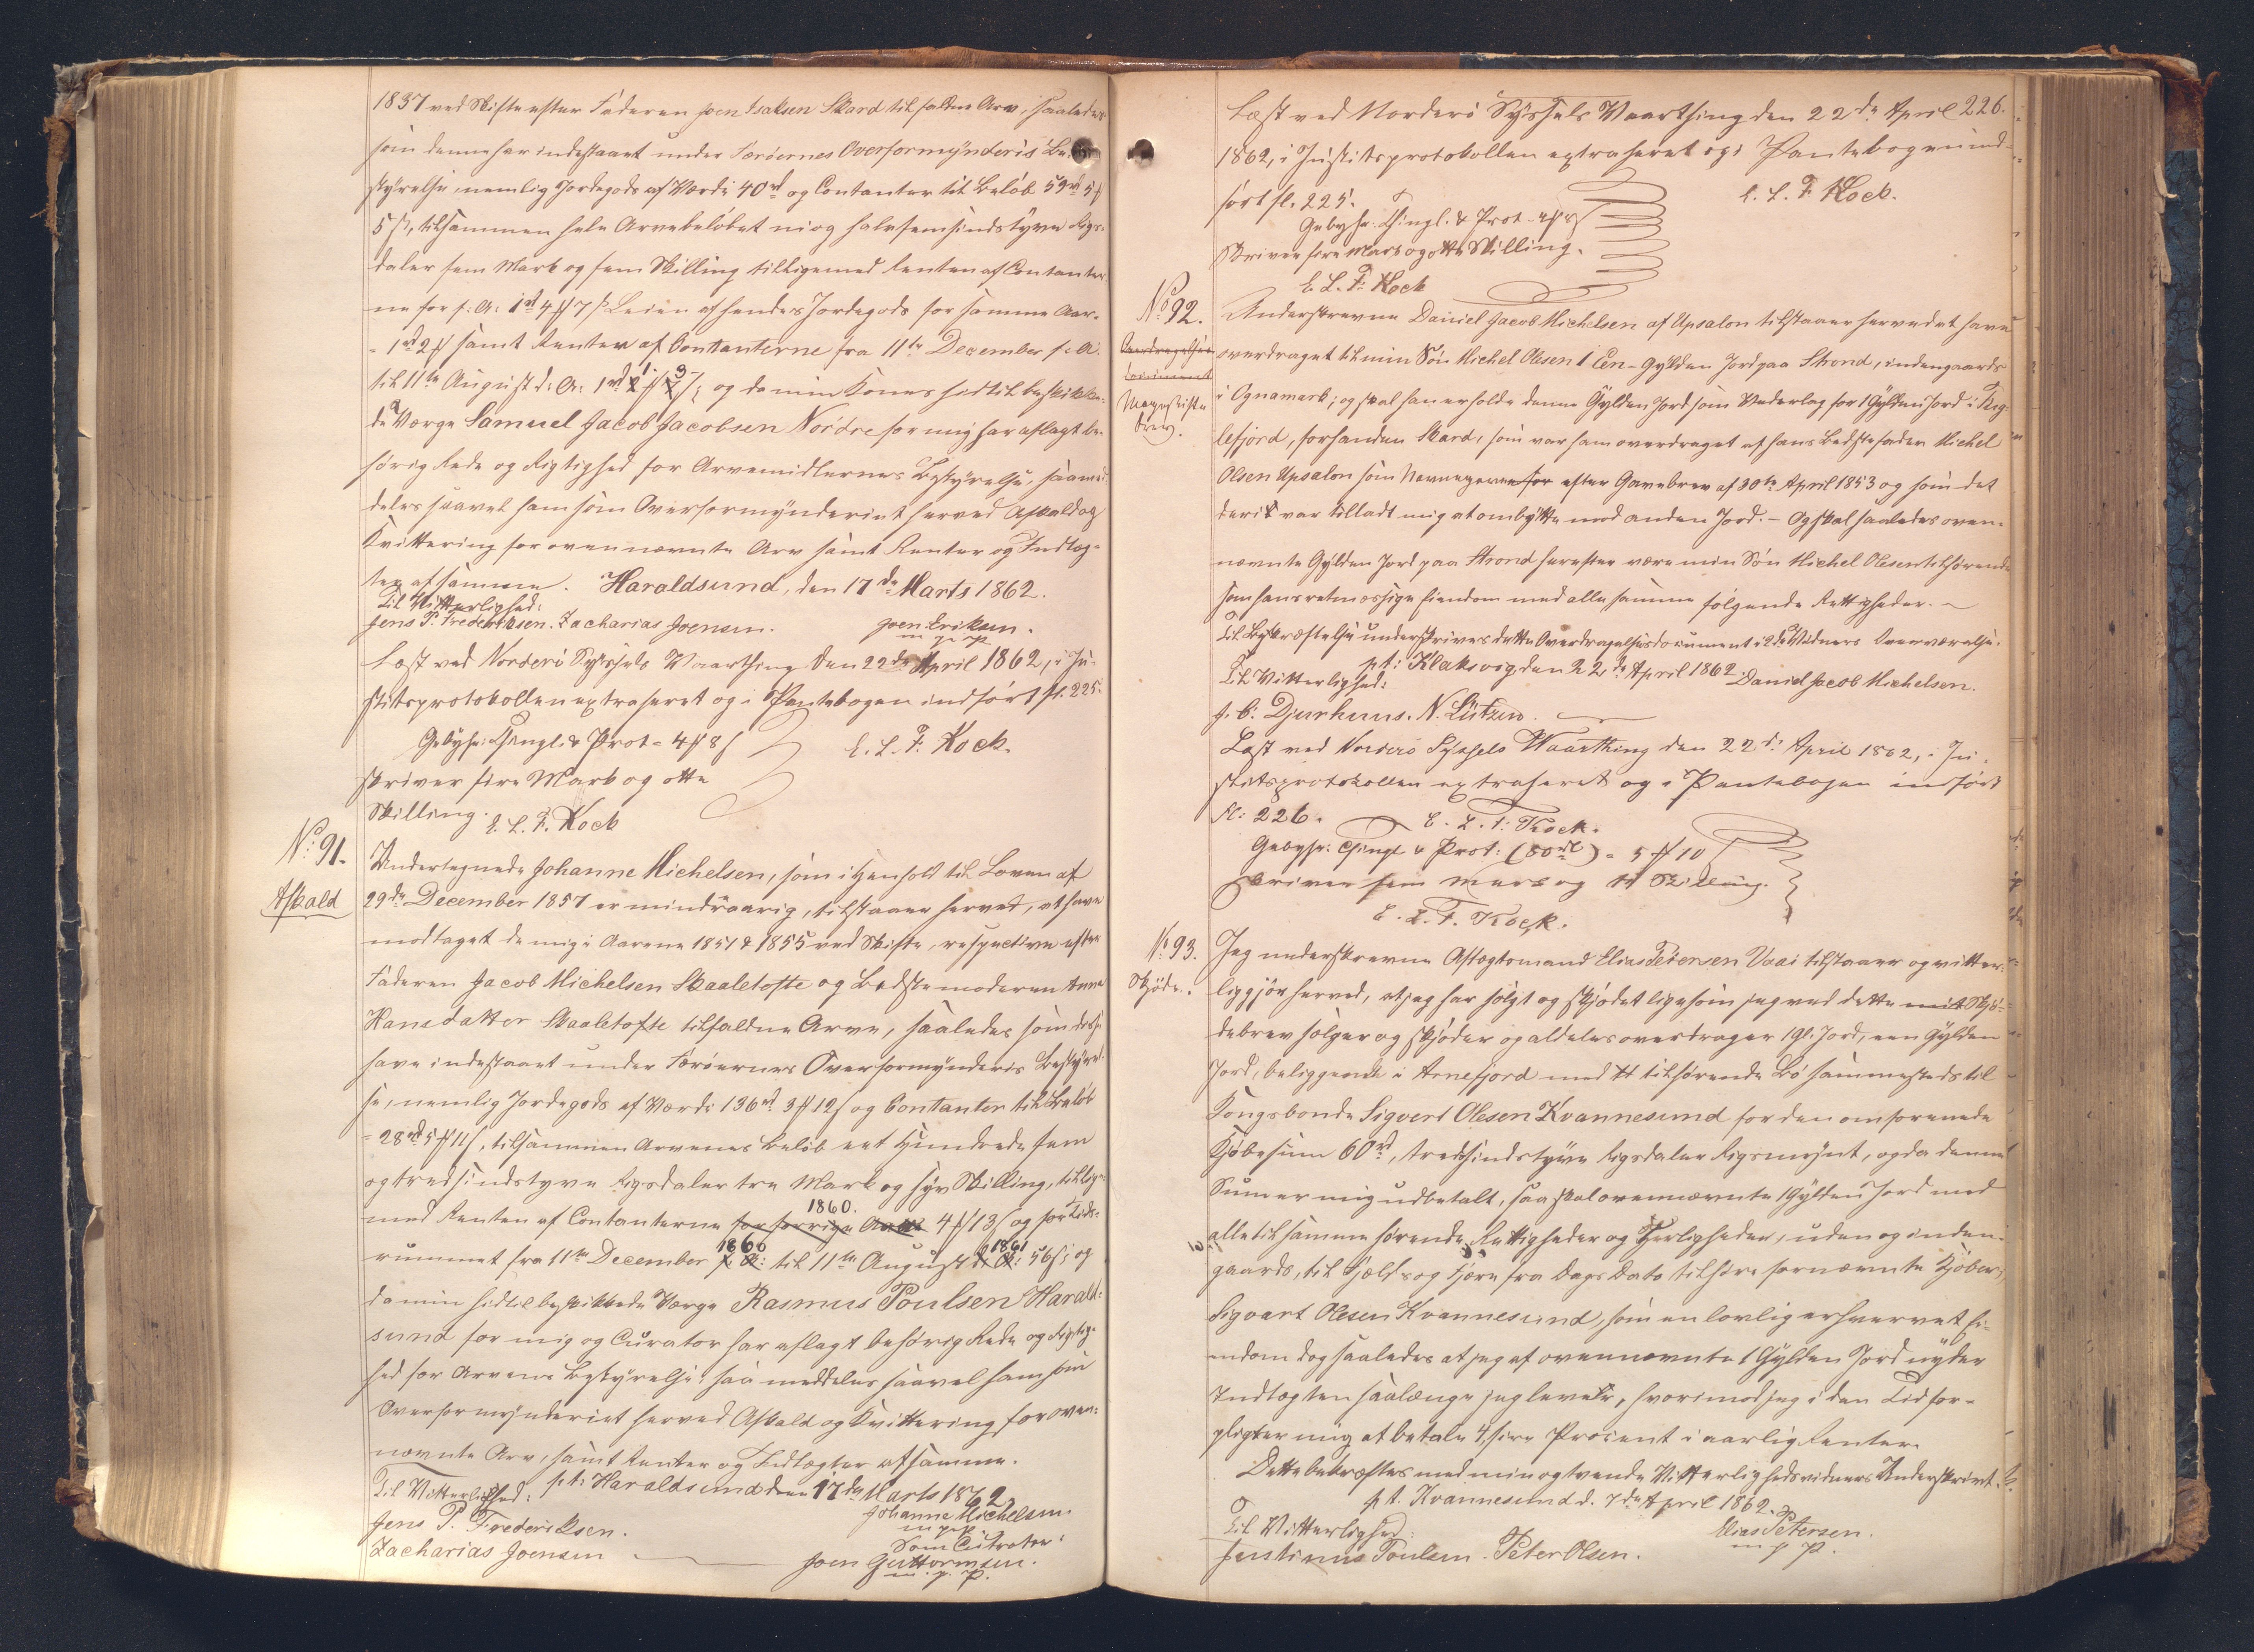 1837 ved Skifte efter Faderen Joen Isaksen Skard tilfaldne Arv, saaledes
som denne har indestaaet under Færøernes Overformynderis Be-
styrelse, nemlig Jordegods af Værdi 40 rd og Contanter til Beløb 59 rd 5 ℳ
5 ß, tilsammen hele Arvebeløbet ni og halvfemsindstyve Rigs-
daler fem Mark og fem Skilling tilligemed Renten af Contanter-
ne for f: A: 1 rd 4 ℳ 7 ß Leien af hendes Jordegods for samme Aar
- 1 rd 2 ℳ samt Renter af Contanterne fra 11te December f: A:
til 11te August d: A: 1 rd 1 ℳ 3 ß; og da min Kones hidtil beskikke-
de Værge Samuel Jacob Jacobsen Nordre for mig har aflagt be-
hörig Rede og Rigtighed for Arvemidlernes Bestyrelse, saa med-
deles saavel ham som Overformynderiet herved Afkald og
Kvittering for ovennævnte Arv samt Renter og Indtæg-
ter af samme. Haraldsund, den 17de Marts 1862.
Til Vitterlighed:
Jens P. Frederiksen. Zacharias Joensen. Joen Eriksen.
m. p. P.
Læst ved Norderö Syssels Vaarthing den 22de April 1862, i Ju-
stitsprotokollen extraheret og i Pantebogen indfört fl. 225.
Gebyhr: Thingl. & Prot = 4 ℳ 8 ß E. L. F. Kock.
skriver fire Mark og otte
Skilling. E. L. F. Kock
No. 91.
Afkald
Undertegnede Johanne Michelsen, som i Henhold til Loven af
29de December 1857 er mindreaarig, tilstaaer herved, at have
modtaget de mig i Aarene 1851 & 1855 ved Skifte, respective efter
Faderen Jacob Michelsen Skaaletofte og Bedstemoderen Anne
Hansdatter Skaaletofte tilfaldne Arve, saaledes som disse
have indestaaet under Færöernes Overformynderis Bestyrel-
se, nemlig Jordegods af Værdi 136 rd 3 ℳ 12 ß og Contanter til Belöb
= 28 rd 5 ℳ 11 ß, tilsammen Arvenes Belöb eet Hundrede fem
og tredsindstyve Rigsdaler tre Mark og syv Skilling, tillige-
med Renten af Contanterne for forrige Aar 1860. 4 ℳ 13 ß og for Tids-
rummet fra 11te December f. A: 1860 til 11te August d. A: 1861 56 ß; og
da min hidtil beskikkede Værge Rasmus Poulsen Harald-
sund for mig og Curator har aflagt behörig Rede og Rigtig-
hed for Arvens Bestyrelse: saa meddeles saavel ham som
Overformynderiet herved Afkald og Kvittering for oven-
nævnte Arv, samt Renter og Indtægter af samme.
Til Vitterlighed: p. t: Haraldsund den 17de Marts 1862.
Jens P. Frederiksen. Johanne Michelsen
m. p. P.
Zacharias Joensen Som Curator:
Joen Guttormsen.
m. p. P.
226.
Læst ved Norderö Syssels Vaarthing den 22de April
1862, i Justitsprotokollen extraheret og i Pantebogen ind-
fört fl. 225. E. L. F. Kock.
Gebyhr: Thingl. & Prot - 4 ℳ 8 ß
skriver fire Mark og otte Skilling.
E. L. F. Kock
No. 92.
Overdragelses
Document
Mageskifte
Brev.
Underskrevne Daniel Jacob Michelsen af Upsalon tilstaaer herved at have
overdraget til min Sön Michel Olesen 1 Een - Gylden Jord paa Strond, indengaards
i Ognamark; og skal han erholde denne Gylden Jord som Vederlag for 1 Gylden Jord i Tig-
lefjord, forhenden Skard, som var ham overdraget af hans Bedstefader Michel
Olsen Upsalon som Navnegave for efter Gavebrev af 30te April 1853 og som det
deri var tilladt mig at ombytte mod anden Jord. - Og skal saaledes oven-
nævnte Gylden Jord paa Strond herefter være min Sön Michel Olesen tilhörende
som hans retmæssige Eiendom med alle samme fölgende Rettigheder. -
Til Bekræftelse underskrives dette Overdragelsesdocument i 2de Vidners Overværelse.
p. t: Klaksvig den 22de April 1862. Daniel Jacob Michelsen.
Til Vitterlighed:
J. C. Djurhuus. N. Lützen.
Læst ved Norderö Syssels Vaarthing den 22de April 1862, i Ju-
stitsprotokollen extraheret og i Pantebogen indfört
fl: 226. E. L. F. Kock.
Gebyhr: Thingl & Prot: (50 rd) = 5 ℳ 10 ß
skriver fem Mark og ti Skilling.
E. L. F. Kock.
No. 93.
Skjöde.
Jeg underskrevne Aftægtsmand Elias Petersen Vaai tilstaaer og vitter-
liggjör herved, at jeg har solgt og skjödet ligesom jeg ved dette mit Skjö-
debrev sælger og skjöder og aldeles overdrager 1 Gl. Jord, een Gylden
Jord, beliggende i Arnefjord med tilhörende Bö sammesteds til
Kongsbonde Sigvert Olesen Kvannesund for den omforenede
Kjöbesum 60 rd, tredsindstyve Rigsdaler Rigsmynt, og da denne
Sum er mig udbetalt, saa skal ovennævnte 1 Gylden Jord med
alle til samme hörende Rettigheder og Herligheder, uden og inden-
gaards, til Fjælds og Fjære fra Dags Dato tilhöre fornævnte Kjöber,
Sigvart Olesen Kvannesund, som en lovlig erhvervet Ei-
endom dog saaledes at jeg af ovennævnte 1 Gylden Jord nyder
Indtægten saalænge jeg lever, hvorimod jeg i den Tid for-
pligter mig at betale 4, fire Procent i aarlig Renter.
Dette bekræftes med min og tvende Vitterlighedsvidners Underskrivt.
p. t. Kvannesund d. 7de April 1862.
Til Vitterlighed: Elias Petersen.
m. p. P.
Justinus Poulsen. Peter Olsen.